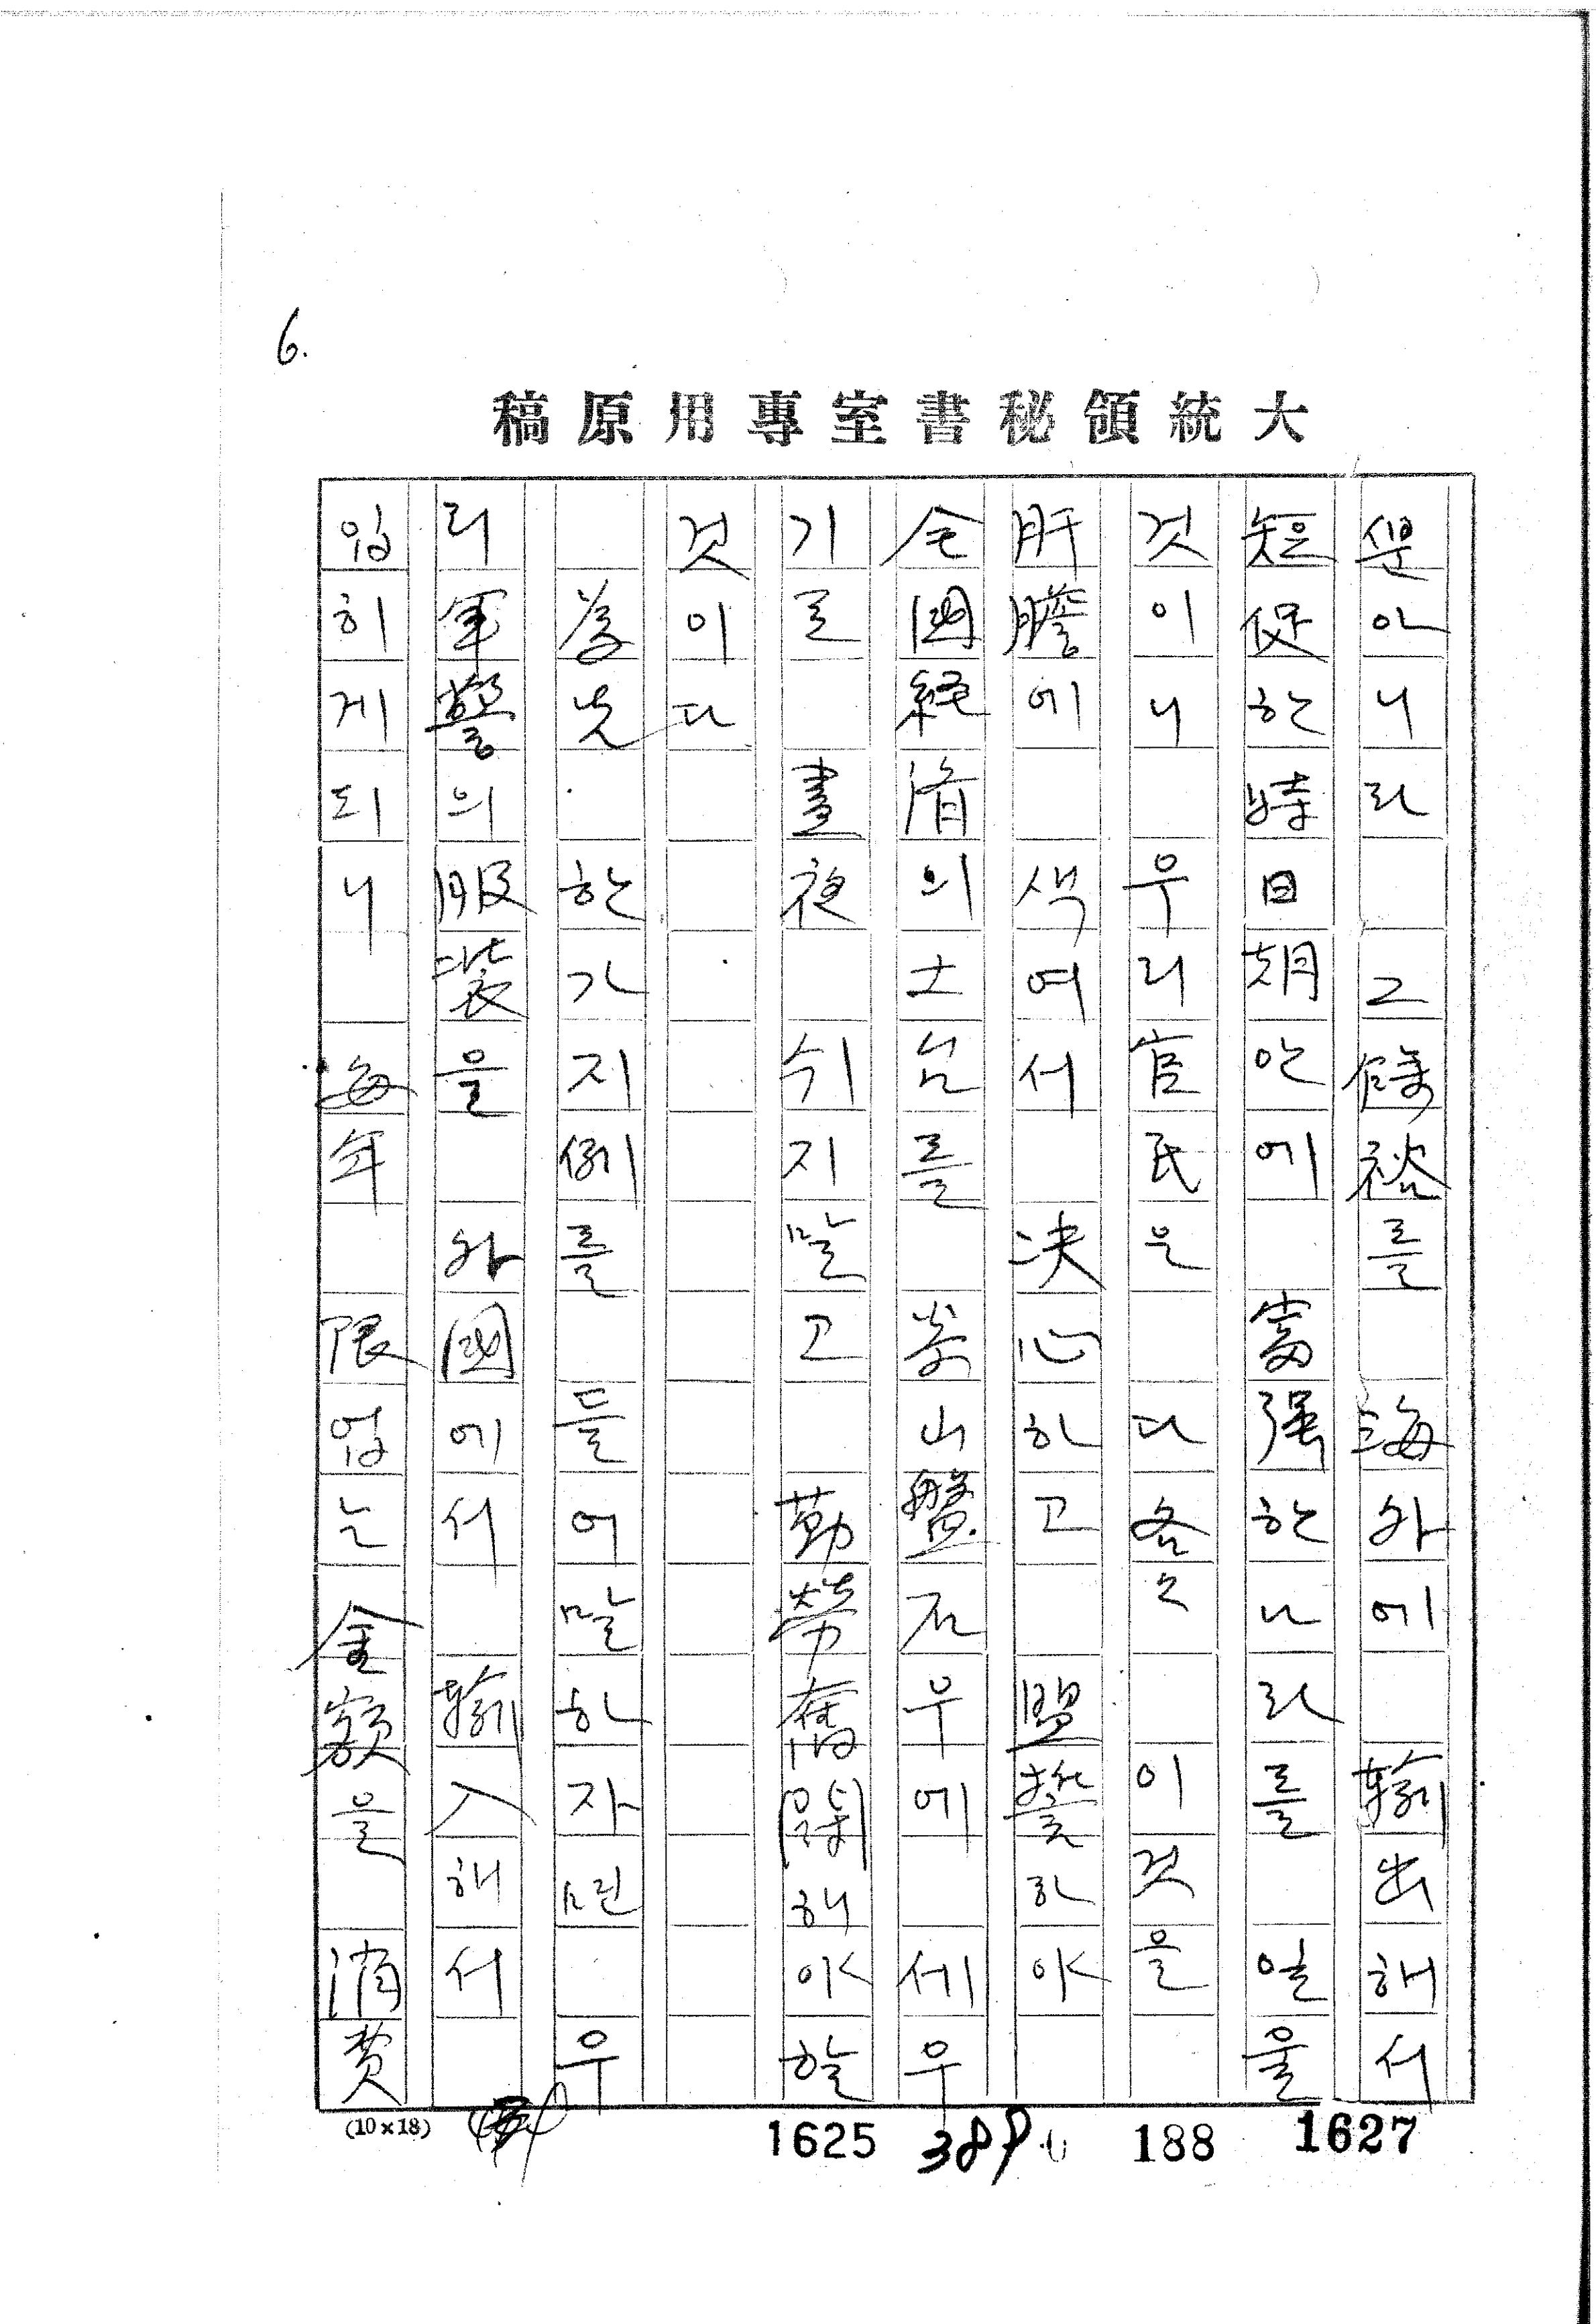 6.
大統領秘書室專用原稿
뿐아니라 그餘裕를 海外에 輸出해서
短促한時日期안에 富强한나라를 일울
것이니 우리官民은 다各々 이것을
肝膽에 색여서 决心하고 盟誓하야
全國経済의土台를 泰山盤石우에 세우
기로 晝夜 쉬지말고 勤勞奮鬪해야할
것이다
爲先 한가지例를 들어말하자면 우
리軍警의服裝을 外國에서 輸入해서
입히게되니 每年 限업는金額을 消費
(10×18)
1625
389
188
1627